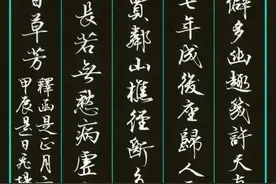 僻多幽趣許天
七年成後座歸人
鄰山樵徑斷
長若無愁病虛
草芳
釋函是正月
甲辰是日